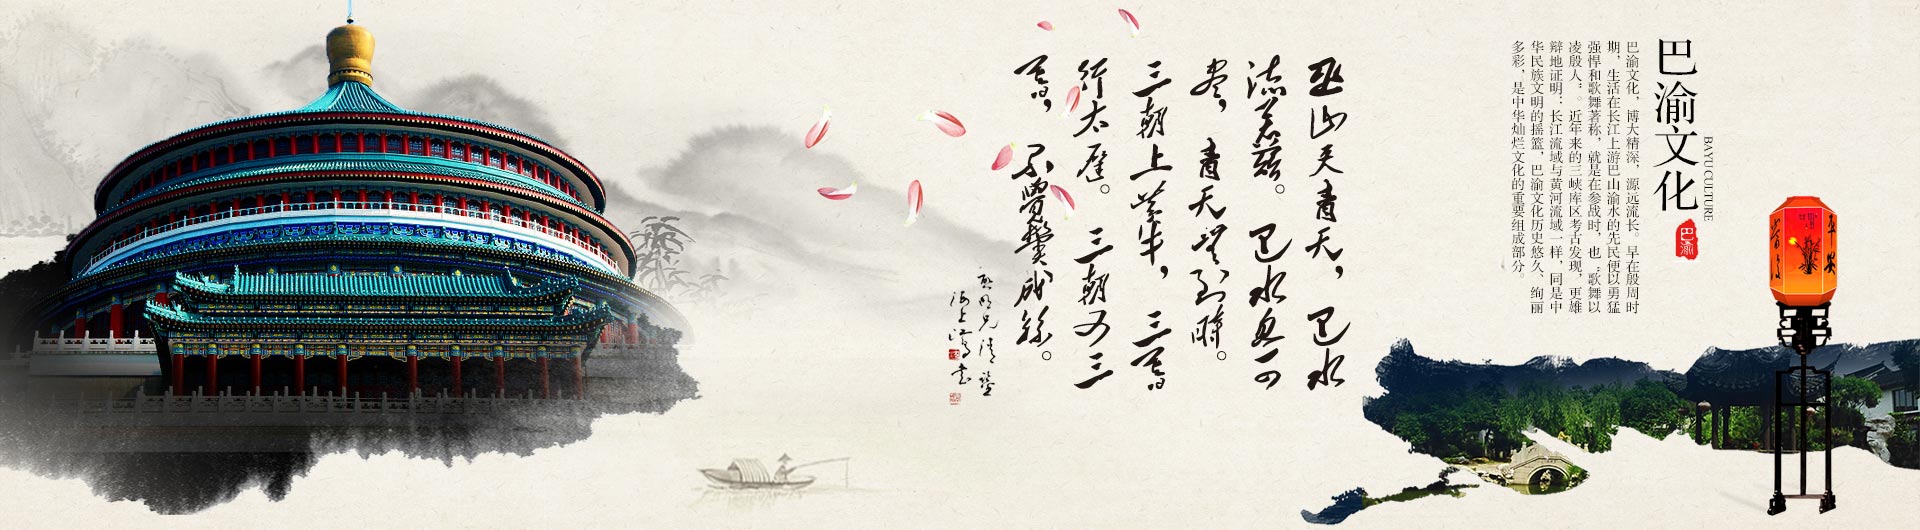 巴渝文化
BAYU CULTURE
巴渝
巴渝文化，博大精深、源远流长。早在殷周时
期，生活在长江上游巴山渝水的先民便以勇猛
强悍和歌舞著称，就是在参战时，也“歌舞以
凌殷人”。近年来的三峡库区考古发现，更雄
辩地证明：长江流域与黄河流域一样，同是中
华民族文明的摇篮，巴渝文化历史悠久、绚丽
多彩，是中华灿烂文化的重要组成部分。
巫山夹青天，巴水
流若兹。巴水忽可
尽，青天无到時。
三朝上黄牛，三暮
行太遲。三朝又三
暮，不覺鬢成絲。
平安